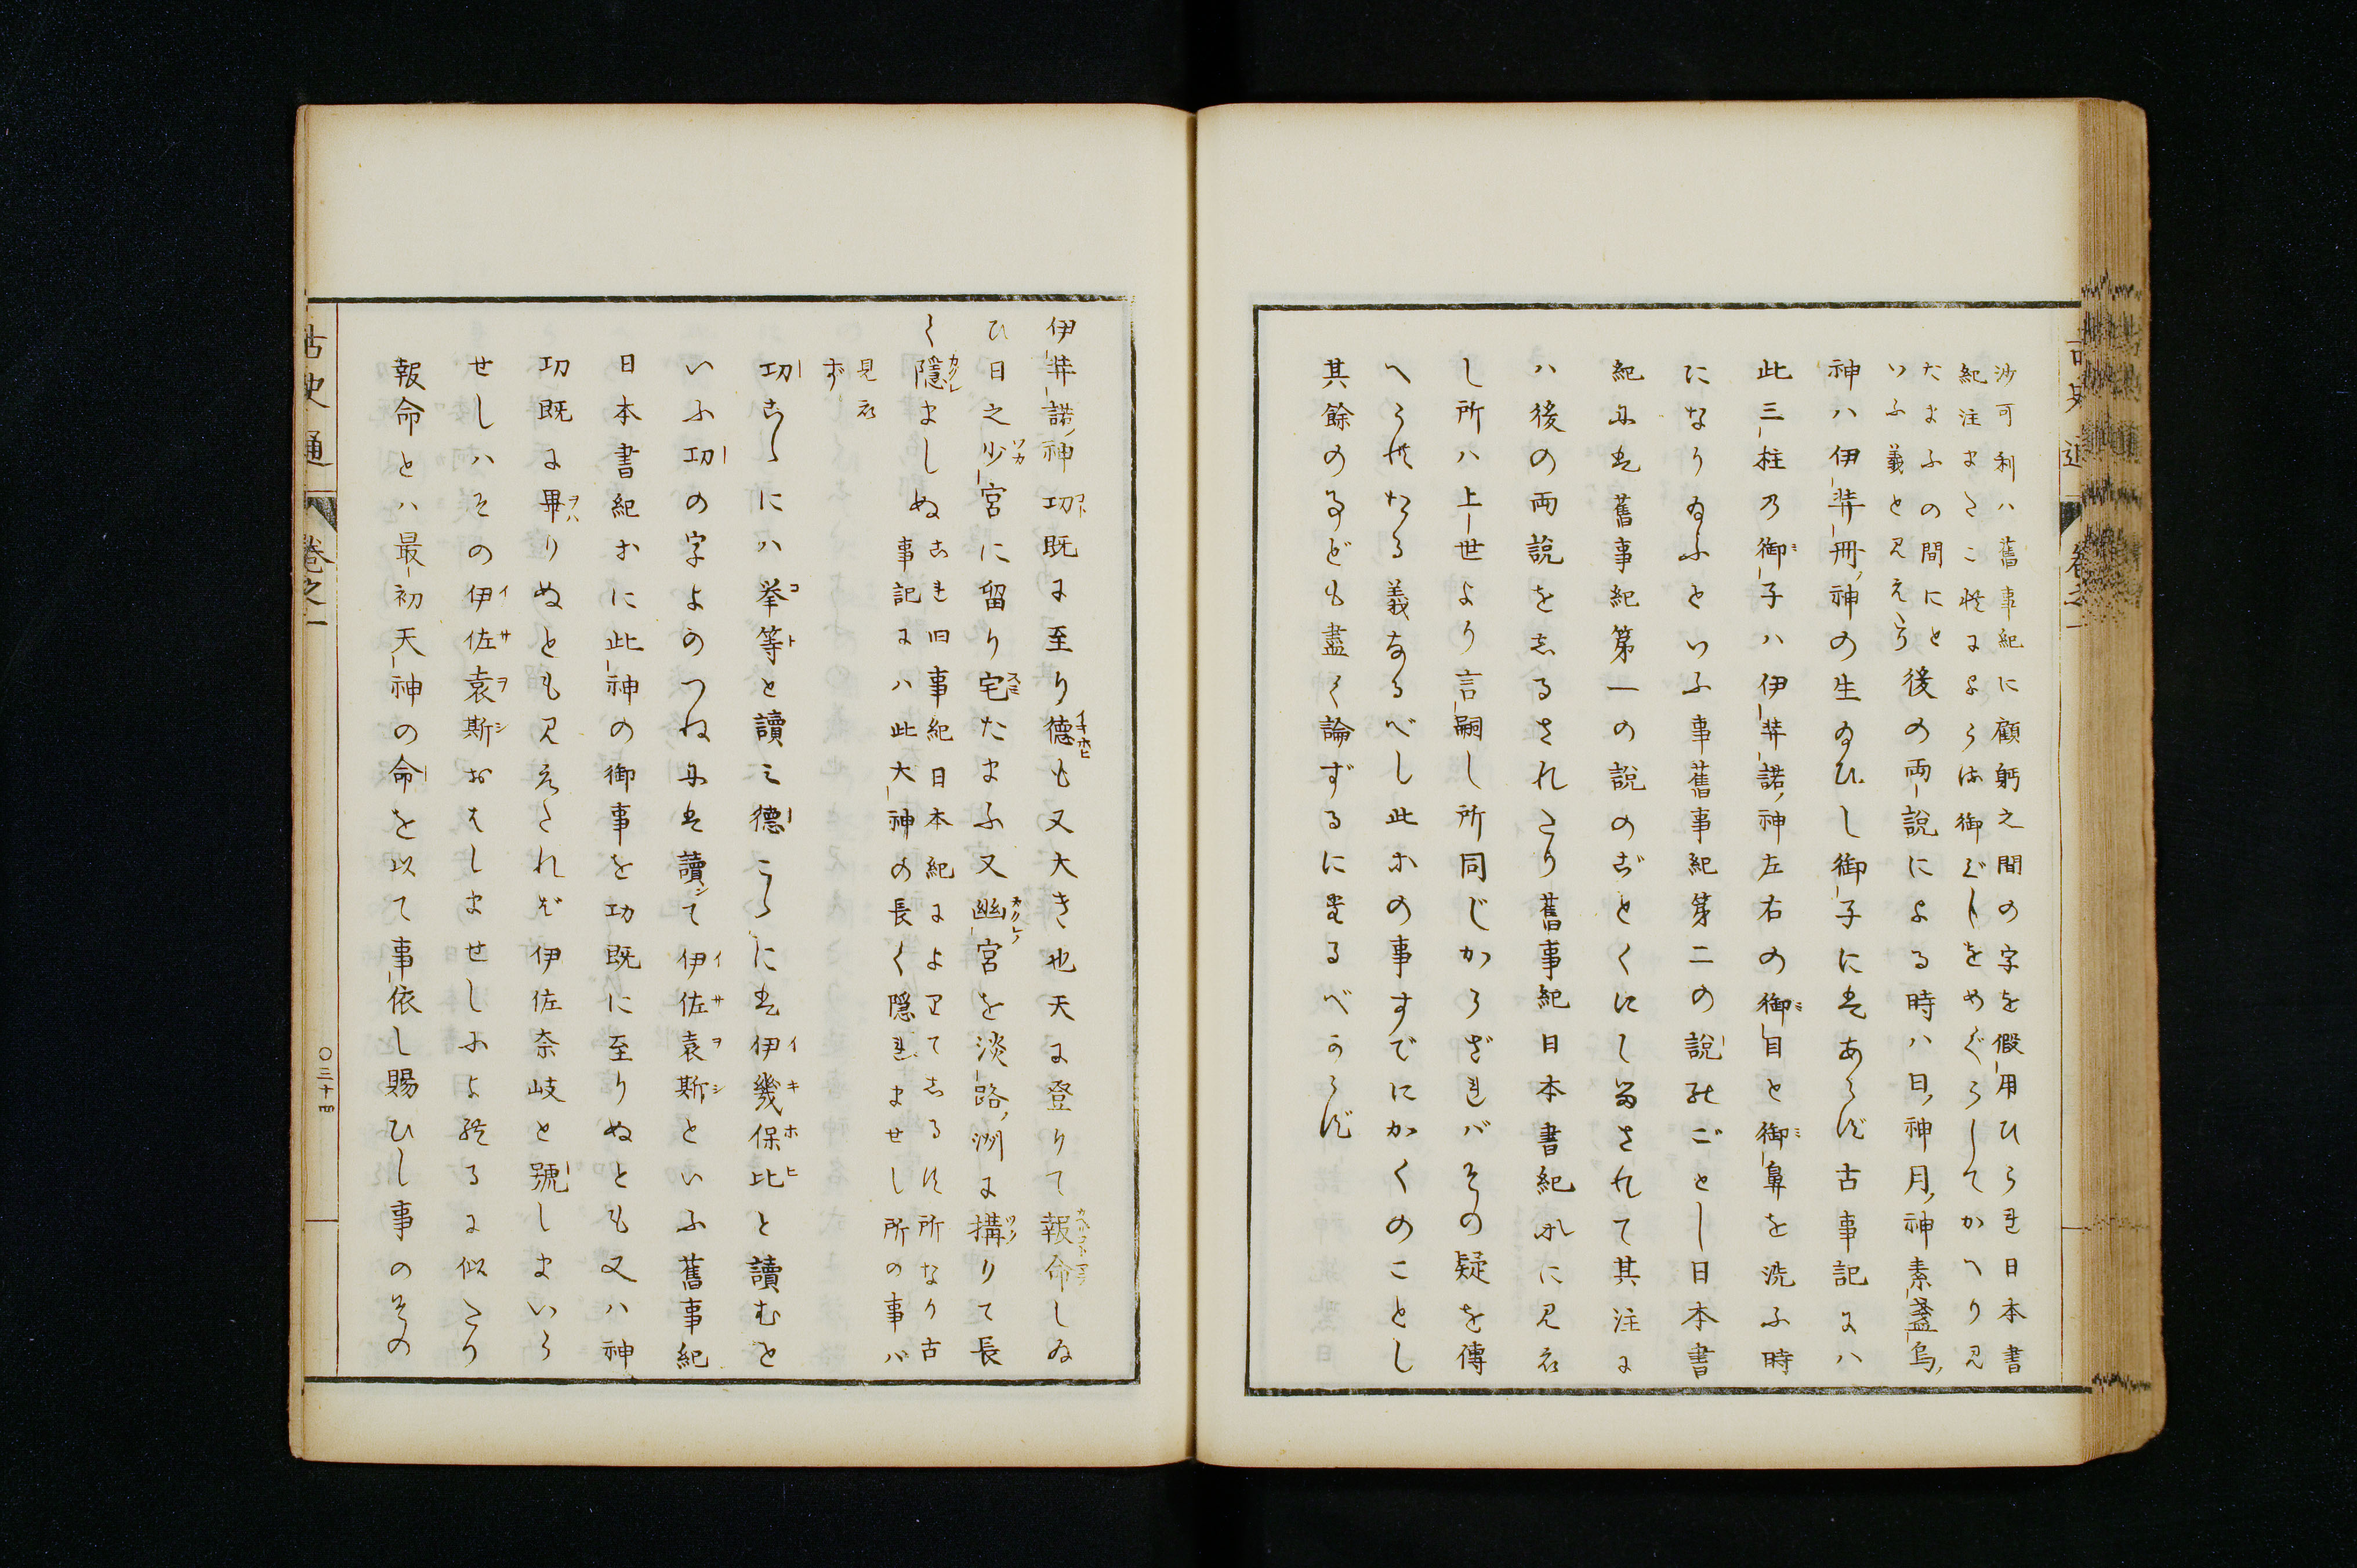 沙可利ハ舊事紀に顧眄之間の字を假用ひらる日本書
紀注まさこ様によらは御ぐしをめぐらしてかへり見
たまふの間にと
いふ義と見えたり
後の両説による時ハ日神月神素盞烏
神ハ伊弉冊神の生ゐひし御子にはあらず古事記にハ
此三柱の御子ハ伊弉諾神左右の御目と御鼻を洗ふ時
になりゐふといふ事舊事紀第二の説のごとし日本書
紀には舊事紀第一の説のごとくにしるされて其注に
ハ後の両説をしるされたり舊事紀日本書紀に見え
し所ハ上世より言嗣し所同じからざればその疑を傳
へられたる義なるべし此等の事すでにかくのことし
其餘の事ども盡く論ずるに及るべからず
伊弉諾神功既に至り徳も又大き也天に登りて報命しゐ
ひ日之少宮に留り宅たまふ又幽宮を淡路洲に搆りて長
く隠ましぬ
これ旧事紀日本紀によりてしるす所なり古
事記にハ此大神の長く隠れませし所の事バ
見え
ず
功こゝにハ挙等と讀ミ徳こゝには伊幾保比と讀むと
いふ功の字よのつねには讀て伊佐袁斯といふ舊事紀
日本書紀等に此神の御事を功既に至りぬとも又ハ神
功既に畢りぬとも見えたれど伊佐奈岐と號しまいら
せしハその伊佐袁斯おはしませしによれるに似たり
報命とハ最初天神の命を以て事依し賜ひし事のその
古史通
巻之一
〇三十四